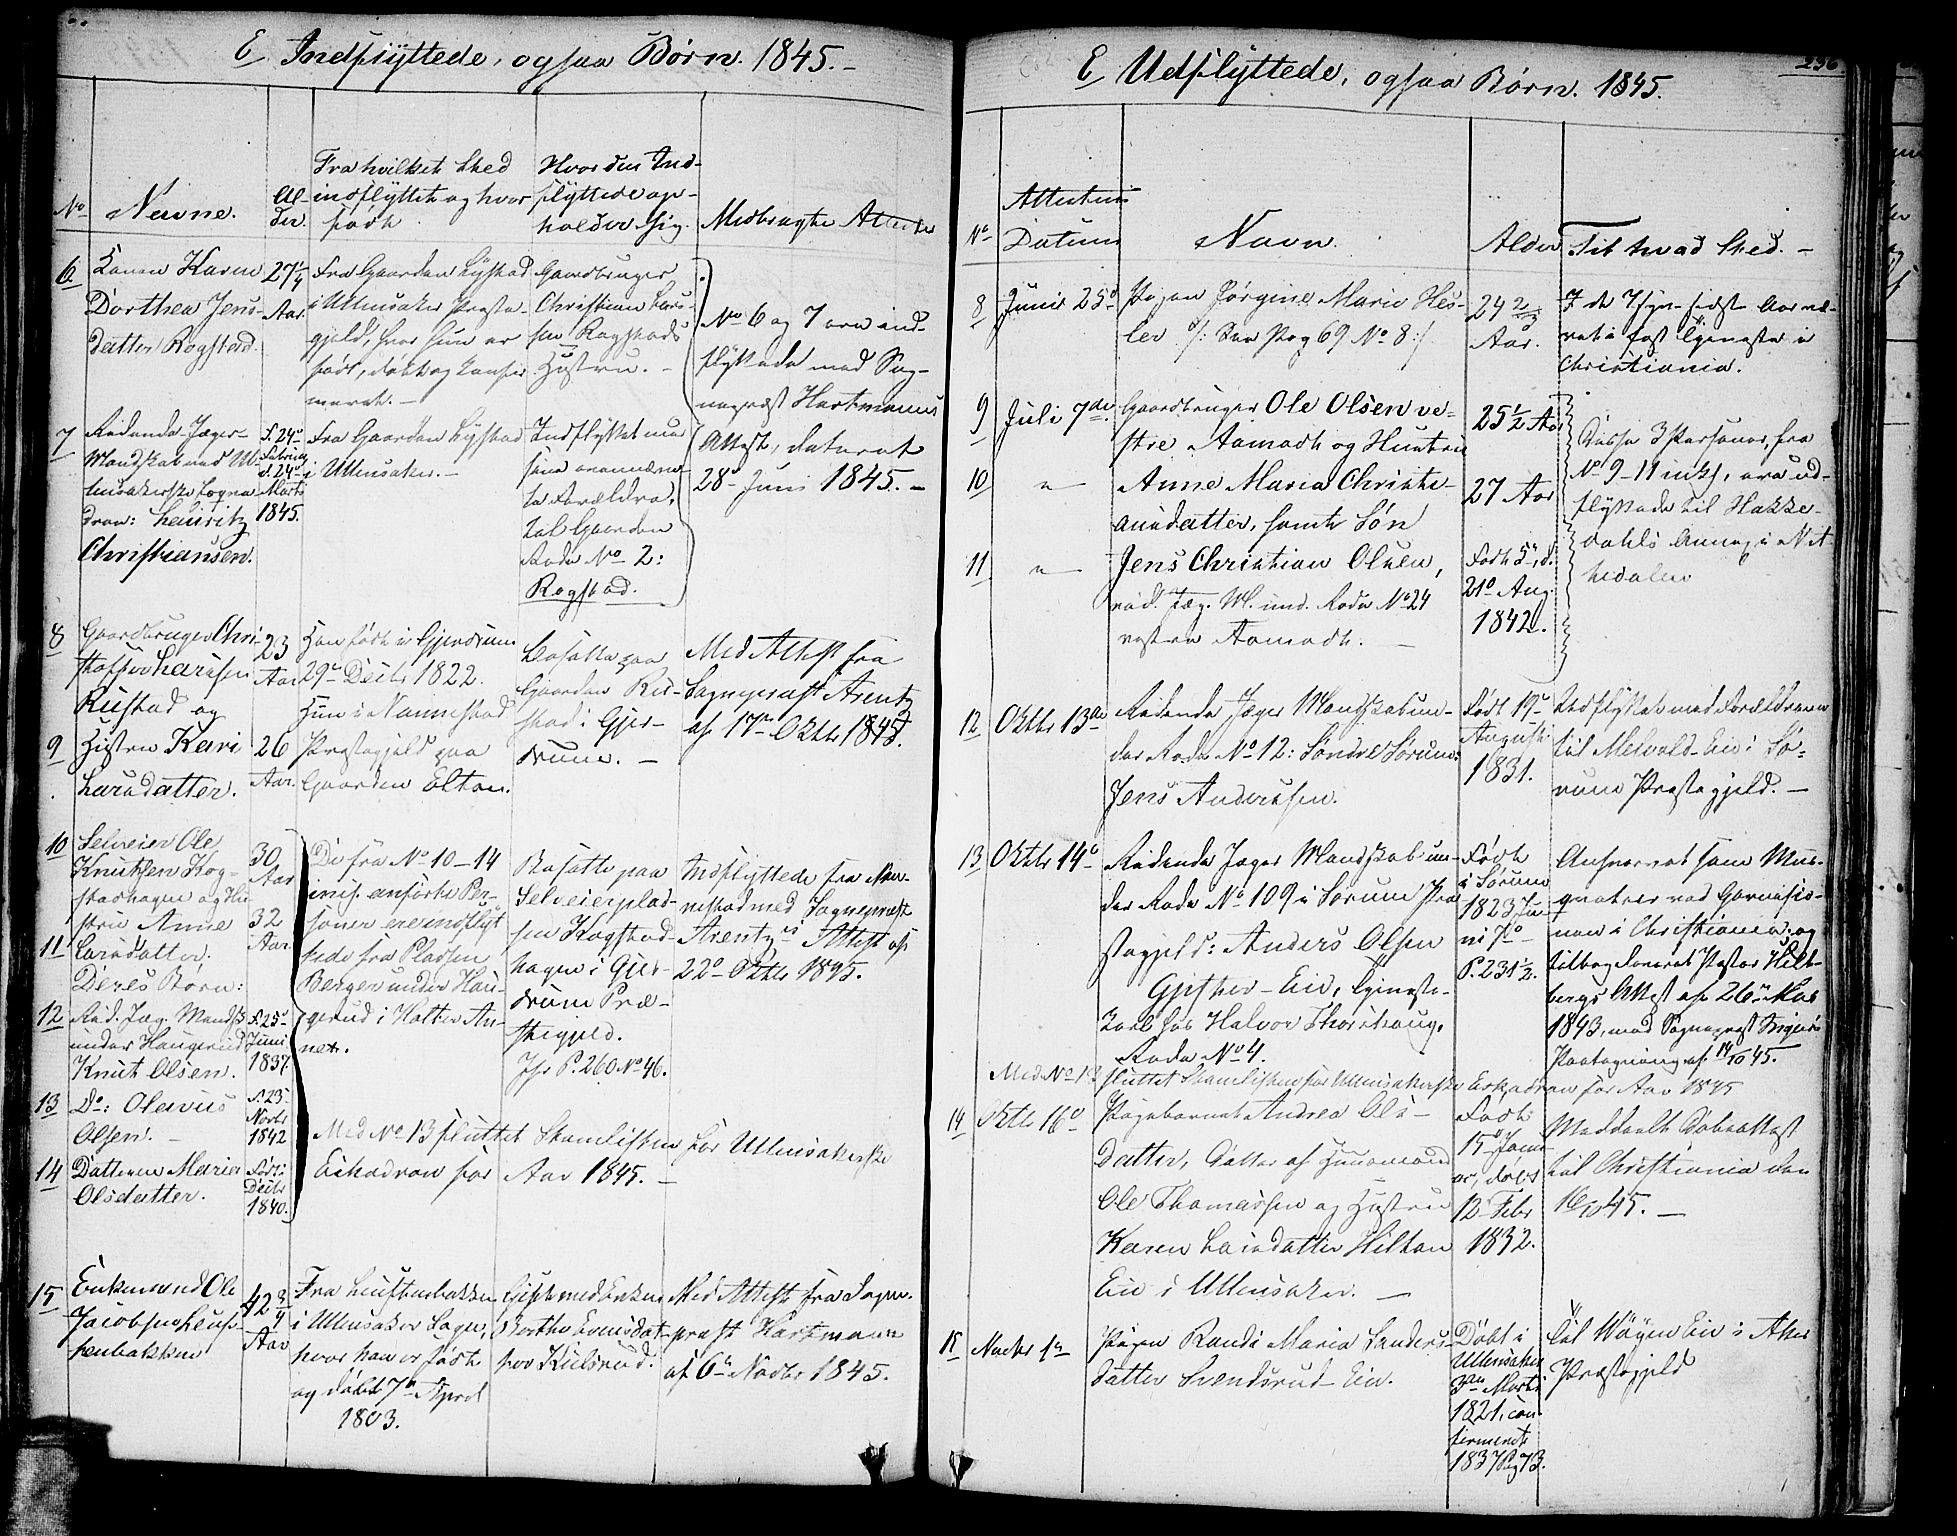 E Indflyttede, ogsaa Børn. 1845.-
No
Navne.
Al-
der.
Fra hvilket Sted
indflyttet og hvor
født
Hvor den Ind-
flyttede op-
holder sig.
Medbragte Attester
6
Konen Karen
Dorthea Jens-
datter Rogstad.
27 1/4
Aar.
Fra Gaarden Lystad
i Ullensaker Præste-
gjeld, hvor hun er
født, døbt og confir-
meret. -
Gaardbruger
Christian Lars-
sen Rogstads
Hustru. -
No 6 og 7 ere ind-
flyttede med Sog-
nepræst Hartmanns
Attest, dateret
28de Juni 1845. -
7
Ridende Jæger-
Mandskab ved Ul-
lensakerske Esqva-
dron: Lauritz
Christiansen.
F. 24de
Februar
d. 24de
Marts
1845.
Fra Gaarden Lystad
i Ullensaker. -
Indflyttet med
sine ovennævn-
te Forældre,
til Gaarden
Rode No 2:
Rogstad.
8
Gaardbruger Chri-
stoffer Larssen
Rustad og
23
Aar
Han født i Gjerdrum
29de Decbr 1822.
Hun i Nannestad
Præstegjeld paa
Gaarden Elton.
Bosatte paa
Gaarden Ru-
stad i Gjer-
drum. -
Med Attest fra
Sognepræst Arentz
af 17de Oktbr 1845.
9
Hustru Kari
Larsdatter.
26
Aar.
10
Selveier Ole
Knutsen Kog-
stadhagen og Hu-
stru Anne
30
Aar
De fra No 10-14
incl. anførte Per-
soner ere indflyt-
tede fra Pladsen
Berger under Hau-
gerud i Holter An-
nex.
Bosatte paa
Selveierplad-
sen Kogstad-
hagen i Gjer-
drum Præ-
stegjeld.
Jfr P. 260 No 46.
Indflyttede fra Nan-
nestad med Sognepræst
Arentz's Attest af
22de Oktbr 1845.
11
Larsdatter.
Deres Børn:
32
Aar
12
Rid. Jæg. Mandsk.
under Haugerud
Knut Olsen.
F. 25de
Juni
1837.
13
Do: Olavus
Olsen. -
F. 23de
Novbr
1842
Med No 13 sluttet Stamlisten for Ullensakerske
Eskadron for Aar 1845. -
14
Datteren Maria
Olsdatter.
Født:
Decbr
1840.
15
Enkemand Ole
Jacobsen
42 3/4
Aar
Fra
i Ullensaker Sogn,
hvor han er født
og døbt 7de April
1803.
Gift med Enken
Berthe Evensdat-
ter Kulsrud.
Med Attest fra Sogne-
præst Hartmann
af 6te Novbr 1845.
E Udflyttede, ogsaa Børn. 1845.
236
No
Attestens
Datum
Navn.
Alder
Til hvad Sted. -
8
Junii 25de
Pigen Jørgine Marie Hes-
ler /: See Pag 69 No 8:/
24 2/3
Aar.
I de 7 syv sidst Aar væ-
ret i fast Tjeneste i
Christiania.
9
Juli 7de.
Gaardbruger Ole Olsen ve-
stre Aamodt og Hustru
25 1/2 Aar
Disse 3 Personer, fra
No 9-11 incl., ere ud-
flyttede til Hakke-
dahls Annex i Nit-
tedalen
10
"
Anne Maria Christi-
ansdatter, samt Søn
27 Aar
11
"
Jens Christian Olsen,
rid. Jæg. M. und. Rode No 24
vestre Aamodt. -
Født 5te, d.
21de Aug.
1842.
12
Oktbr 13de
Ridende Jæger Mandskab un-
der Rode No 12: Søndre Sørum:
Jens Anderssen.
Født 19de
August
1831.
Udflyttet med Forældrene
til Melvold-Eie i Sø-
rum Præstegjeld. -
13
Oktbr 14de
Ridende Jæger Mandskab un-
der Rode No 109 i Sørum Præ-
stegjeld: Anders Olsen
Gjesther-Eie, Tjeneste-
Karl hos Halvor Thorshaug,
Rode No 4.
Født
i Sørum
1823 Ju-
ni 7de
P. 231 1/2.
Antaget som Mus-
queterer ved Garniso-
nen i Christiania; og
tilbageleveret Pastor Hilt-
bergs Attest af 26de Mai
1843, med Sognepræst
Paategning af 14/10 45.
Med No 13 sluttet Stamlisten for Ullensakerske Eskadron for Aar 1845
14
Oktbr 16de
Pigebarnet Andrea Ols-
datter, Datter af Huusmand
Ole Thomassen og Hustru
Karen Larsdatter Hilton
Eie i Ullensaker. -
Født
15de Janu-
ar, døbt
12 Febr
1832.
Meddeelt Døbeattest
til Christiania den
16/10 45. -
15
Novbr 1ste
Pigen Randi Maria Sanders-
datter Svendsrud-Eie.
Døbt i
Ullensaker
3die Marts
1821, con-
firmeret
1837 Pag 73.
til Wøyen Eie i Aker
Præstegjeld